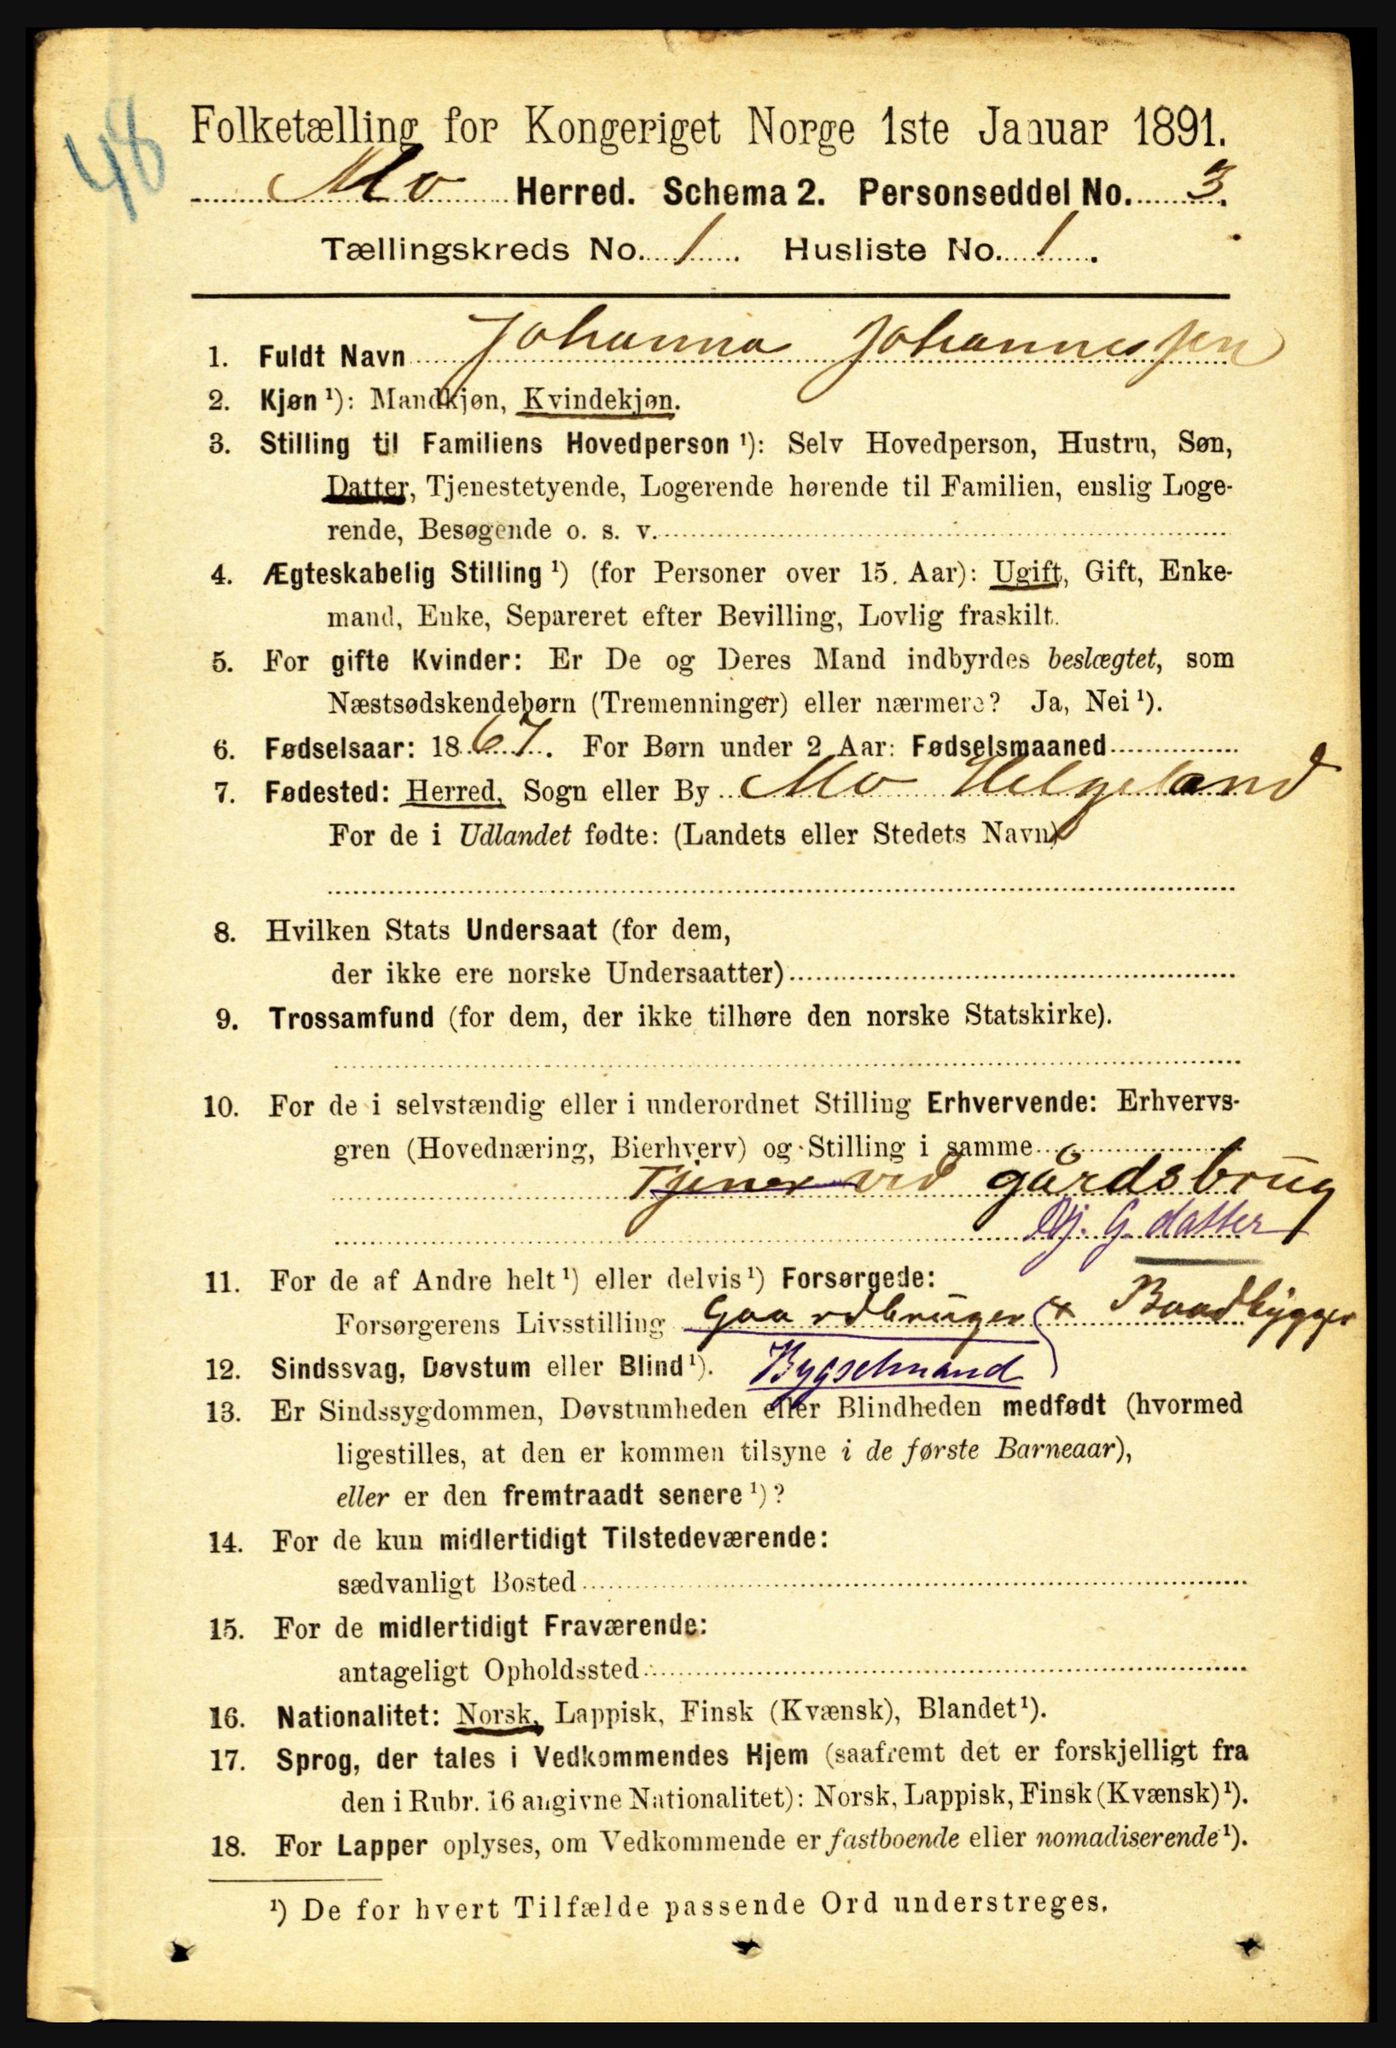 48
Folketælling for Kongeriget Norge 1ste Januar 1891.
Mo Herred. Schema 2. Personseddel No. 3.
Tællingskreds No. 1. Husliste No. 1.
1. Fuldt Navn Johanna Johannessen
2. Kjøn ¹): Mandkjøn, Kvindekjøn.
3. Stilling til Familiens Hovedperson ¹): Selv Hovedperson, Hustru, Søn,
Datter, Tjenestetyende, Logerende hørende til Familien, enslig Loge-
rende, Besøgende o. s. v.
4. Ægteskabelig Stilling ¹) (for Personer over 15 Aar): Ugift, Gift, Enke-
mand, Enke, Separeret efter Bevilling, Lovlig fraskilt.
5. For gifte Kvinder: Er De og Deres Mand indbyrdes beslægtet, som
Næstsødskendebørn (Tremenninger) eller nærmere? Ja, Nei ¹).
6. Fødselsaar: 1867. For Børn under 2 Aar: Fødselsmaaned
7. Fødested: Herred, Sogn eller By Mo Helgeland
For de i Udlandet fødte: (Landets eller Stedets Navn)
8. Hvilken Stats Undersaat (for dem,
der ikke ere norske Undersaatter)
9. Trossamfund (for dem, der ikke tilhøre den norske Statskirke).
10. For de i selvstændig eller i underordnet Stilling Erhvervende: Erhvervs-
gren (Hovednæring, Bierhverv) og Stilling i samme
Tjener ved gårdsbrug
Hj. G. datter
11. For de af Andre helt ¹) eller delvis ¹) Forsørgede:
Forsørgerens Livsstilling Gaardbruger & Baadbygger
12. Sindssvag, Døvstum eller Blind ¹). Bygselmand
13. Er Sindssygdommen, Døvstumheden eller Blindheden medfødt (hvormed
ligestilles, at den er kommen tilsyne i de første Barneaar),
eller er den fremtraadt senere ¹)?
14. For de kun midlertidigt Tilstedeværende:
sædvanligt Bosted
15. For de midlertidigt Fraværende:
antageligt Opholdssted
16. Nationalitet: Norsk, Lappisk, Finsk (Kvænsk), Blandet ¹).
17. Sprog, der tales i Vedkommendes Hjem (saafremt det er forskjelligt fra
den i Rubr. 16 angivne Nationalitet): Norsk, Lappisk, Finsk (Kvænsk) ¹).
18. For Lapper oplyses, om Vedkommende er fastboende eller nomadiserende ¹).
¹) De for hvert Tilfælde passende Ord understreges.